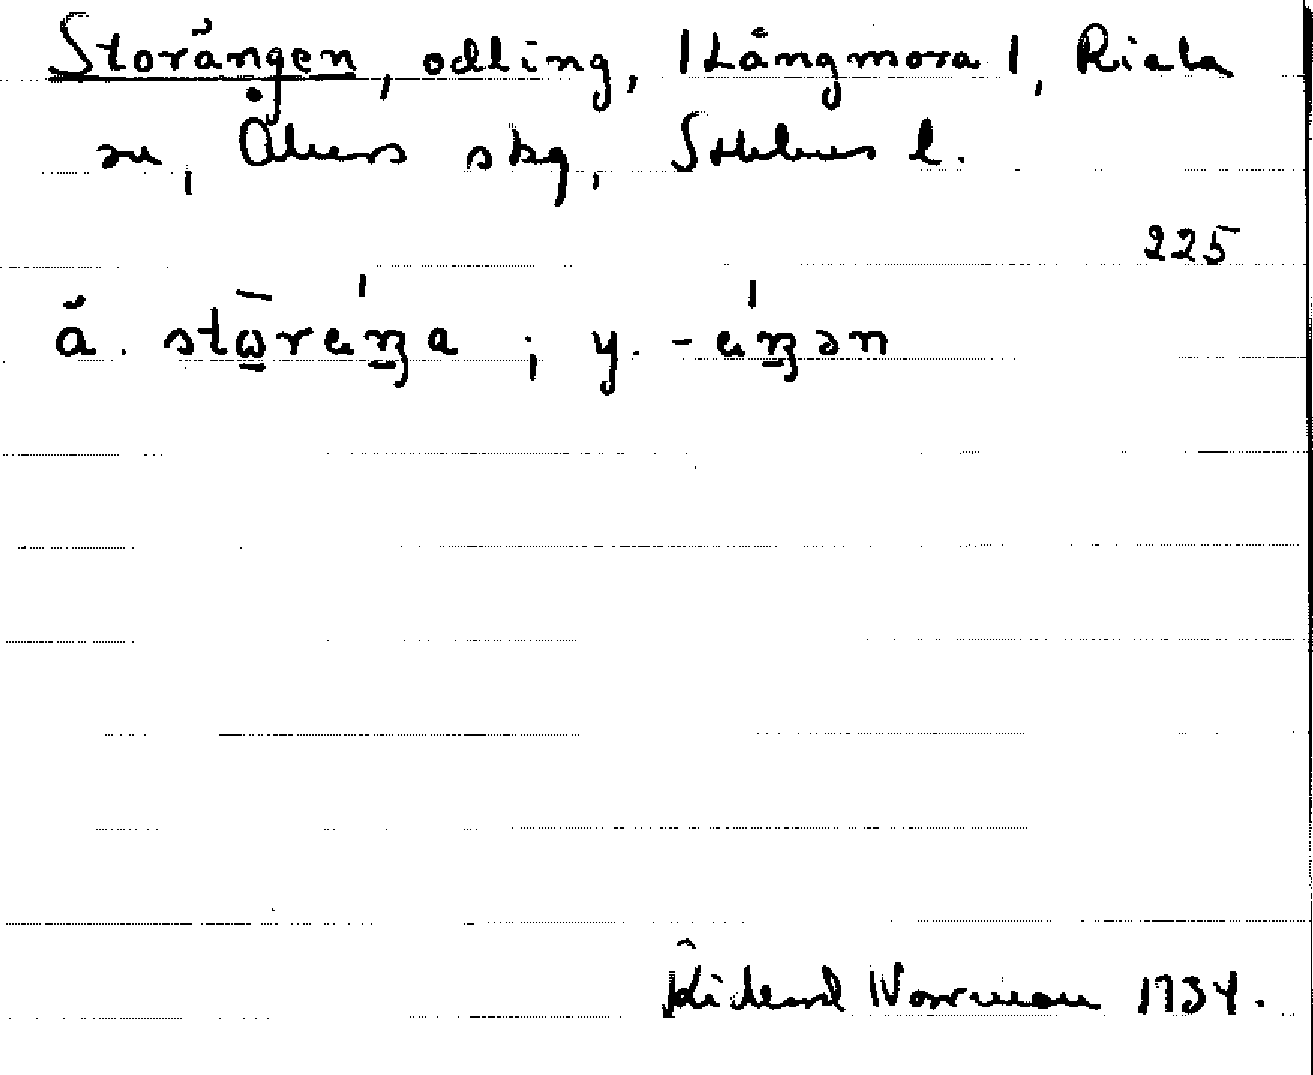 Storängen, odling, |Långmora|, Riala
sn, Åkers skg, Sthlms l.
225
ä. stω̱̄reŋ̱́a ; y. -eŋ̱́ən
Rickard Norrman 1934.